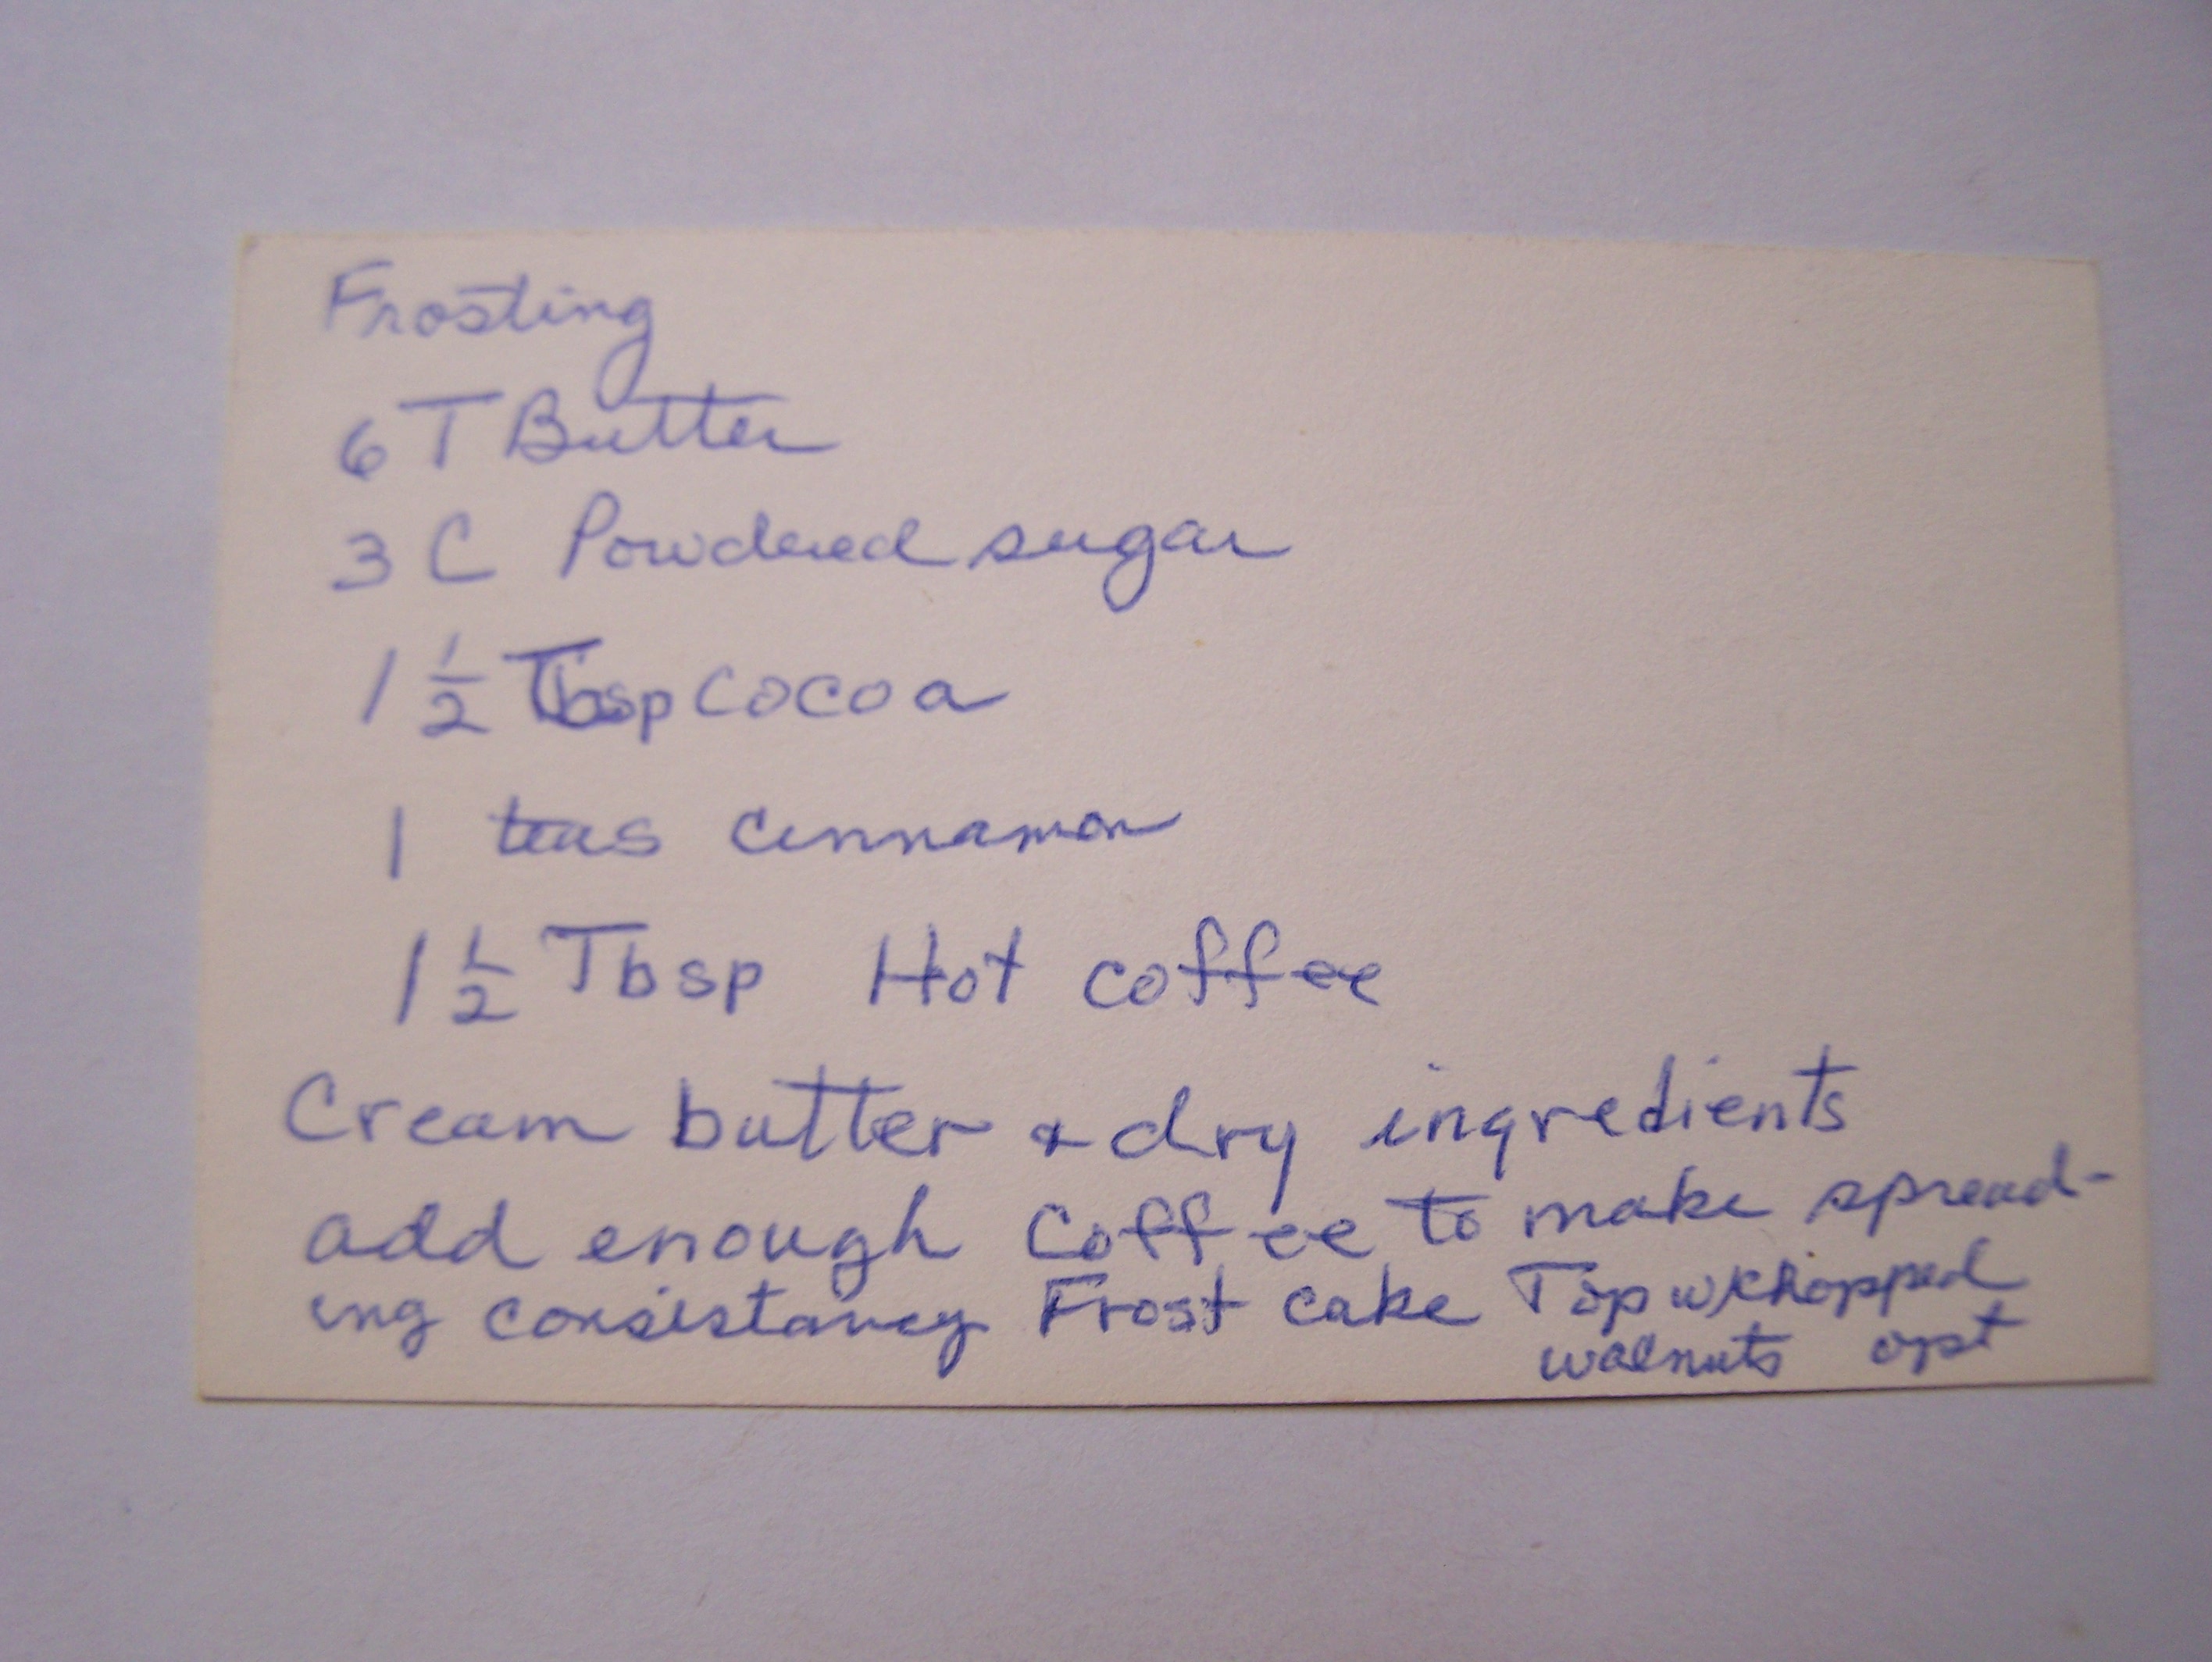 Frosting
6 T Butter
3 C Powdered sugar
1 1/2 Tbsp cocoa
1 teas cinnamon
1 1/2 Tbsp Hot coffee
Cream butter & dry ingredients
add enough Coffee to make spread-
ing consistancy Frost cake Top w/chopped
walnuts opt